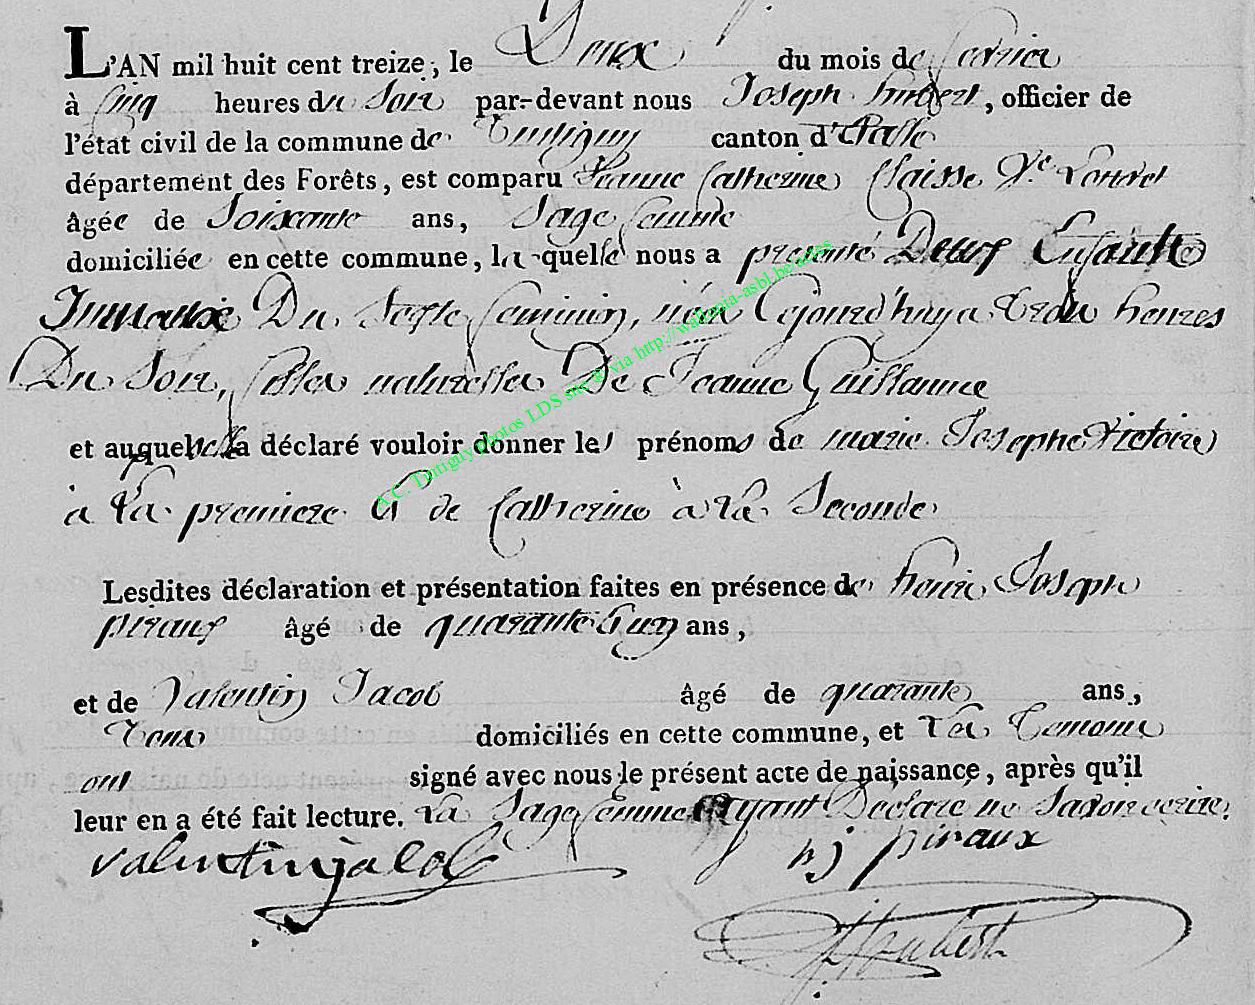 L'AN mil huit cent treize, le Deux du mois de fevrier
à Cinq heures du Soir par-devant nous Joseph hubert, officier de
l'état civil de la commune de Tintigny canton d'Etalle
département des Forêts, est comparu Jeanne Catherine Claisse Ve
âgée de Soixante ans, Sage femme
domiciliée en cette commune, la quelle nous a presenté Deux Enfants
Jumeaux Du Sexe feminin, néa Cejourd'huy a trois heures
Du Soir, filles naturelles De Jeanne Guillaume
et auquelles a déclaré vouloir donner les prénoms de marie Josephe Victoire
a la premiere Et de Catherine à la Seconde
Lesdites déclaration et présentation faites en présence de henri Joseph
piraux âgé de quarante Cinq ans,
et de Valentin Jacob âgé de quarante ans,
Tous domiciliés en cette commune, et les Temoins
ont signé avec nous le présent acte de naissance, après qu'il
leur en a été fait lecture. La Sage femme ayant Declaré ne Savoir écrire.
valentin jacob hj piraux
Hubert
A.C. Tintigny photos LDS site & via http://wallonia-asbl.be/actes